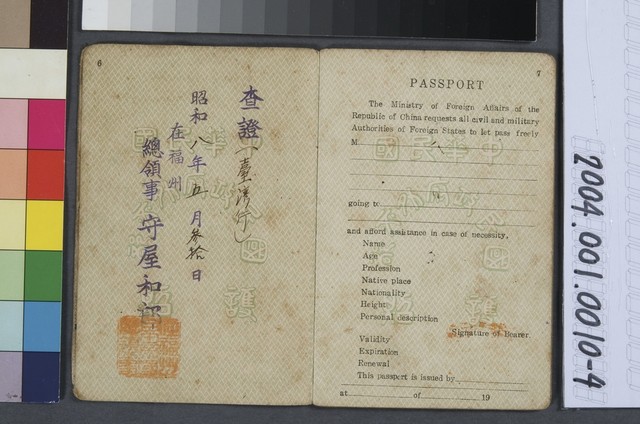 6
查證（臺灣行）
昭和八年五月叁拾日
在福州
總領事 守屋和郎
7
PASSPORT
The Ministry of Foreign Affairs of the
Republic of China requests all civil and military
Authorities of Foreign States to let pass freely
M
going to
and afford assistance in case of necessity.
Name
Age
Profession
Native place
Nationality
Height
Personal description
Signature of Bearer
Validity
Expiration
Renewal
This passport is issued by
at of 19
2004.001.0010-4